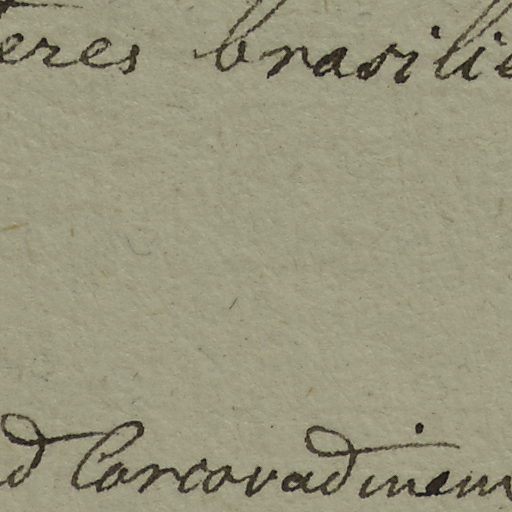 eres brasilie
d Corcovadinem